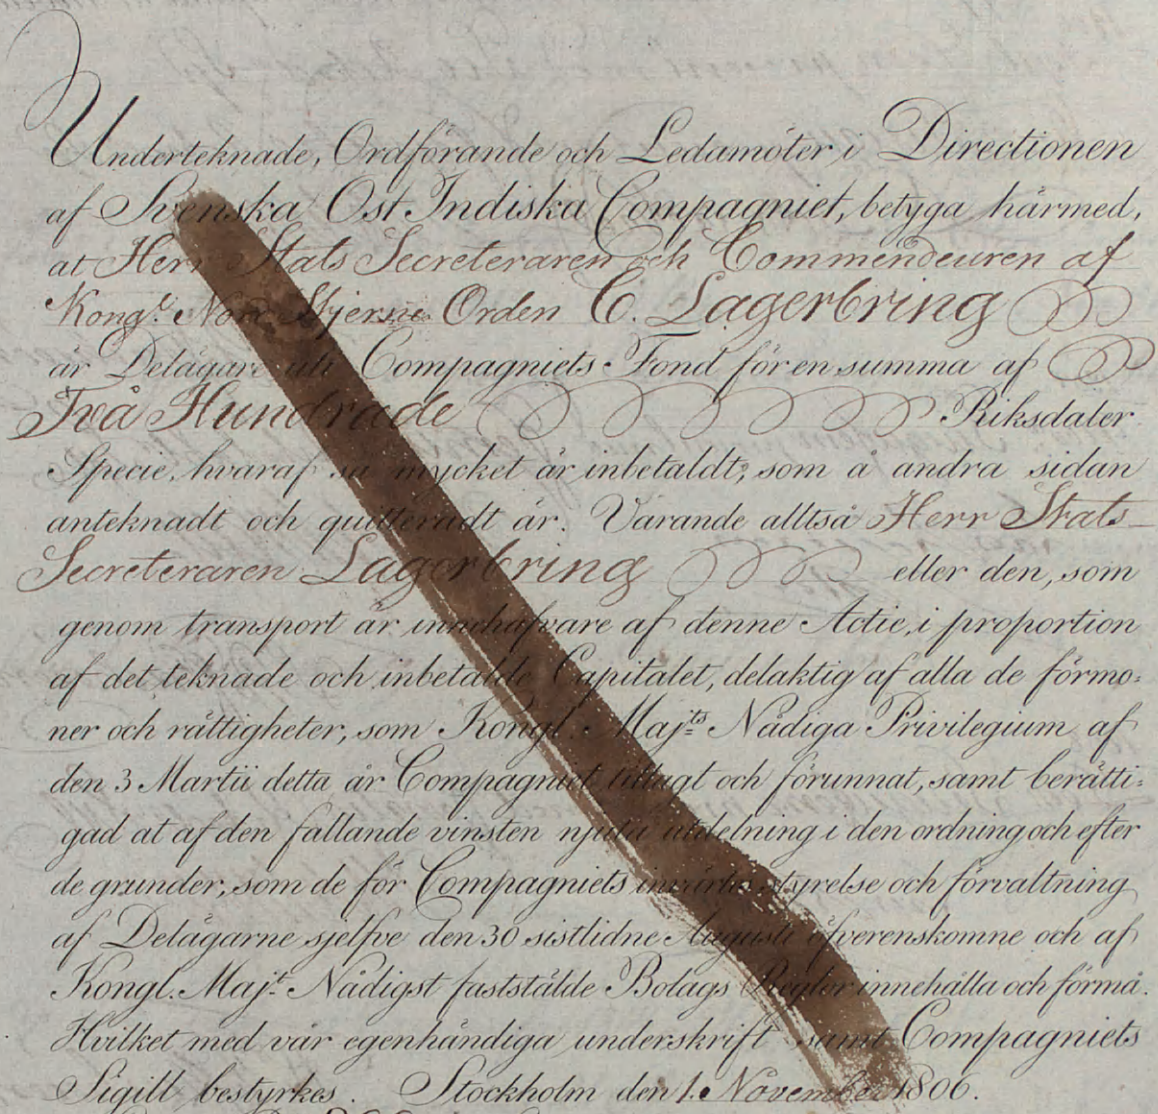 Underteknade, Ordförande och Ledamöter i Directionen
af Svenska Ost Indiska Compagniet, betyga härmed,
at Herr Stats Secreteraren och Commendeuren af
Kongl. Nord Stjerne Orden C. Lagerbring
är Delägare uti Compagniets Fond för en summa af
Två Hundrade Riksdaler
Specie, hvaraf så mycket är inbetaldt, som å andra sidan
anteknadt och quitteradt är. Varande alltså Herr Stats-
Secreteraren Lagerbring eller den, som
genom transport är innehafvare af denne Actie, i proportion
af det teknade och inbetalde Capitalet, delaktig af alla de förmo=
ner och rättigheter, som Kongl. Maj:ts Nådiga Privilegium af
den 3 Martii detta år Compagniet tillagt och förunnat, samt berätti=
gad at af den fallande vinsten njuta utdelning i den ordning och efter
de grunder, som de för Compagniets inwärtes styrelse och förvaltning
af Delägarne sjelfve den 30 sistlidne Augusti öfverenskomne och af
Kongl. Maj:t Nådigst fastställde Bolags Reglor innehålla och förmå.
Hvilket med vår egenhändiga underskrift samt Compagniets
Sigill bestyrkes. Stockholm den 1. November 1806.